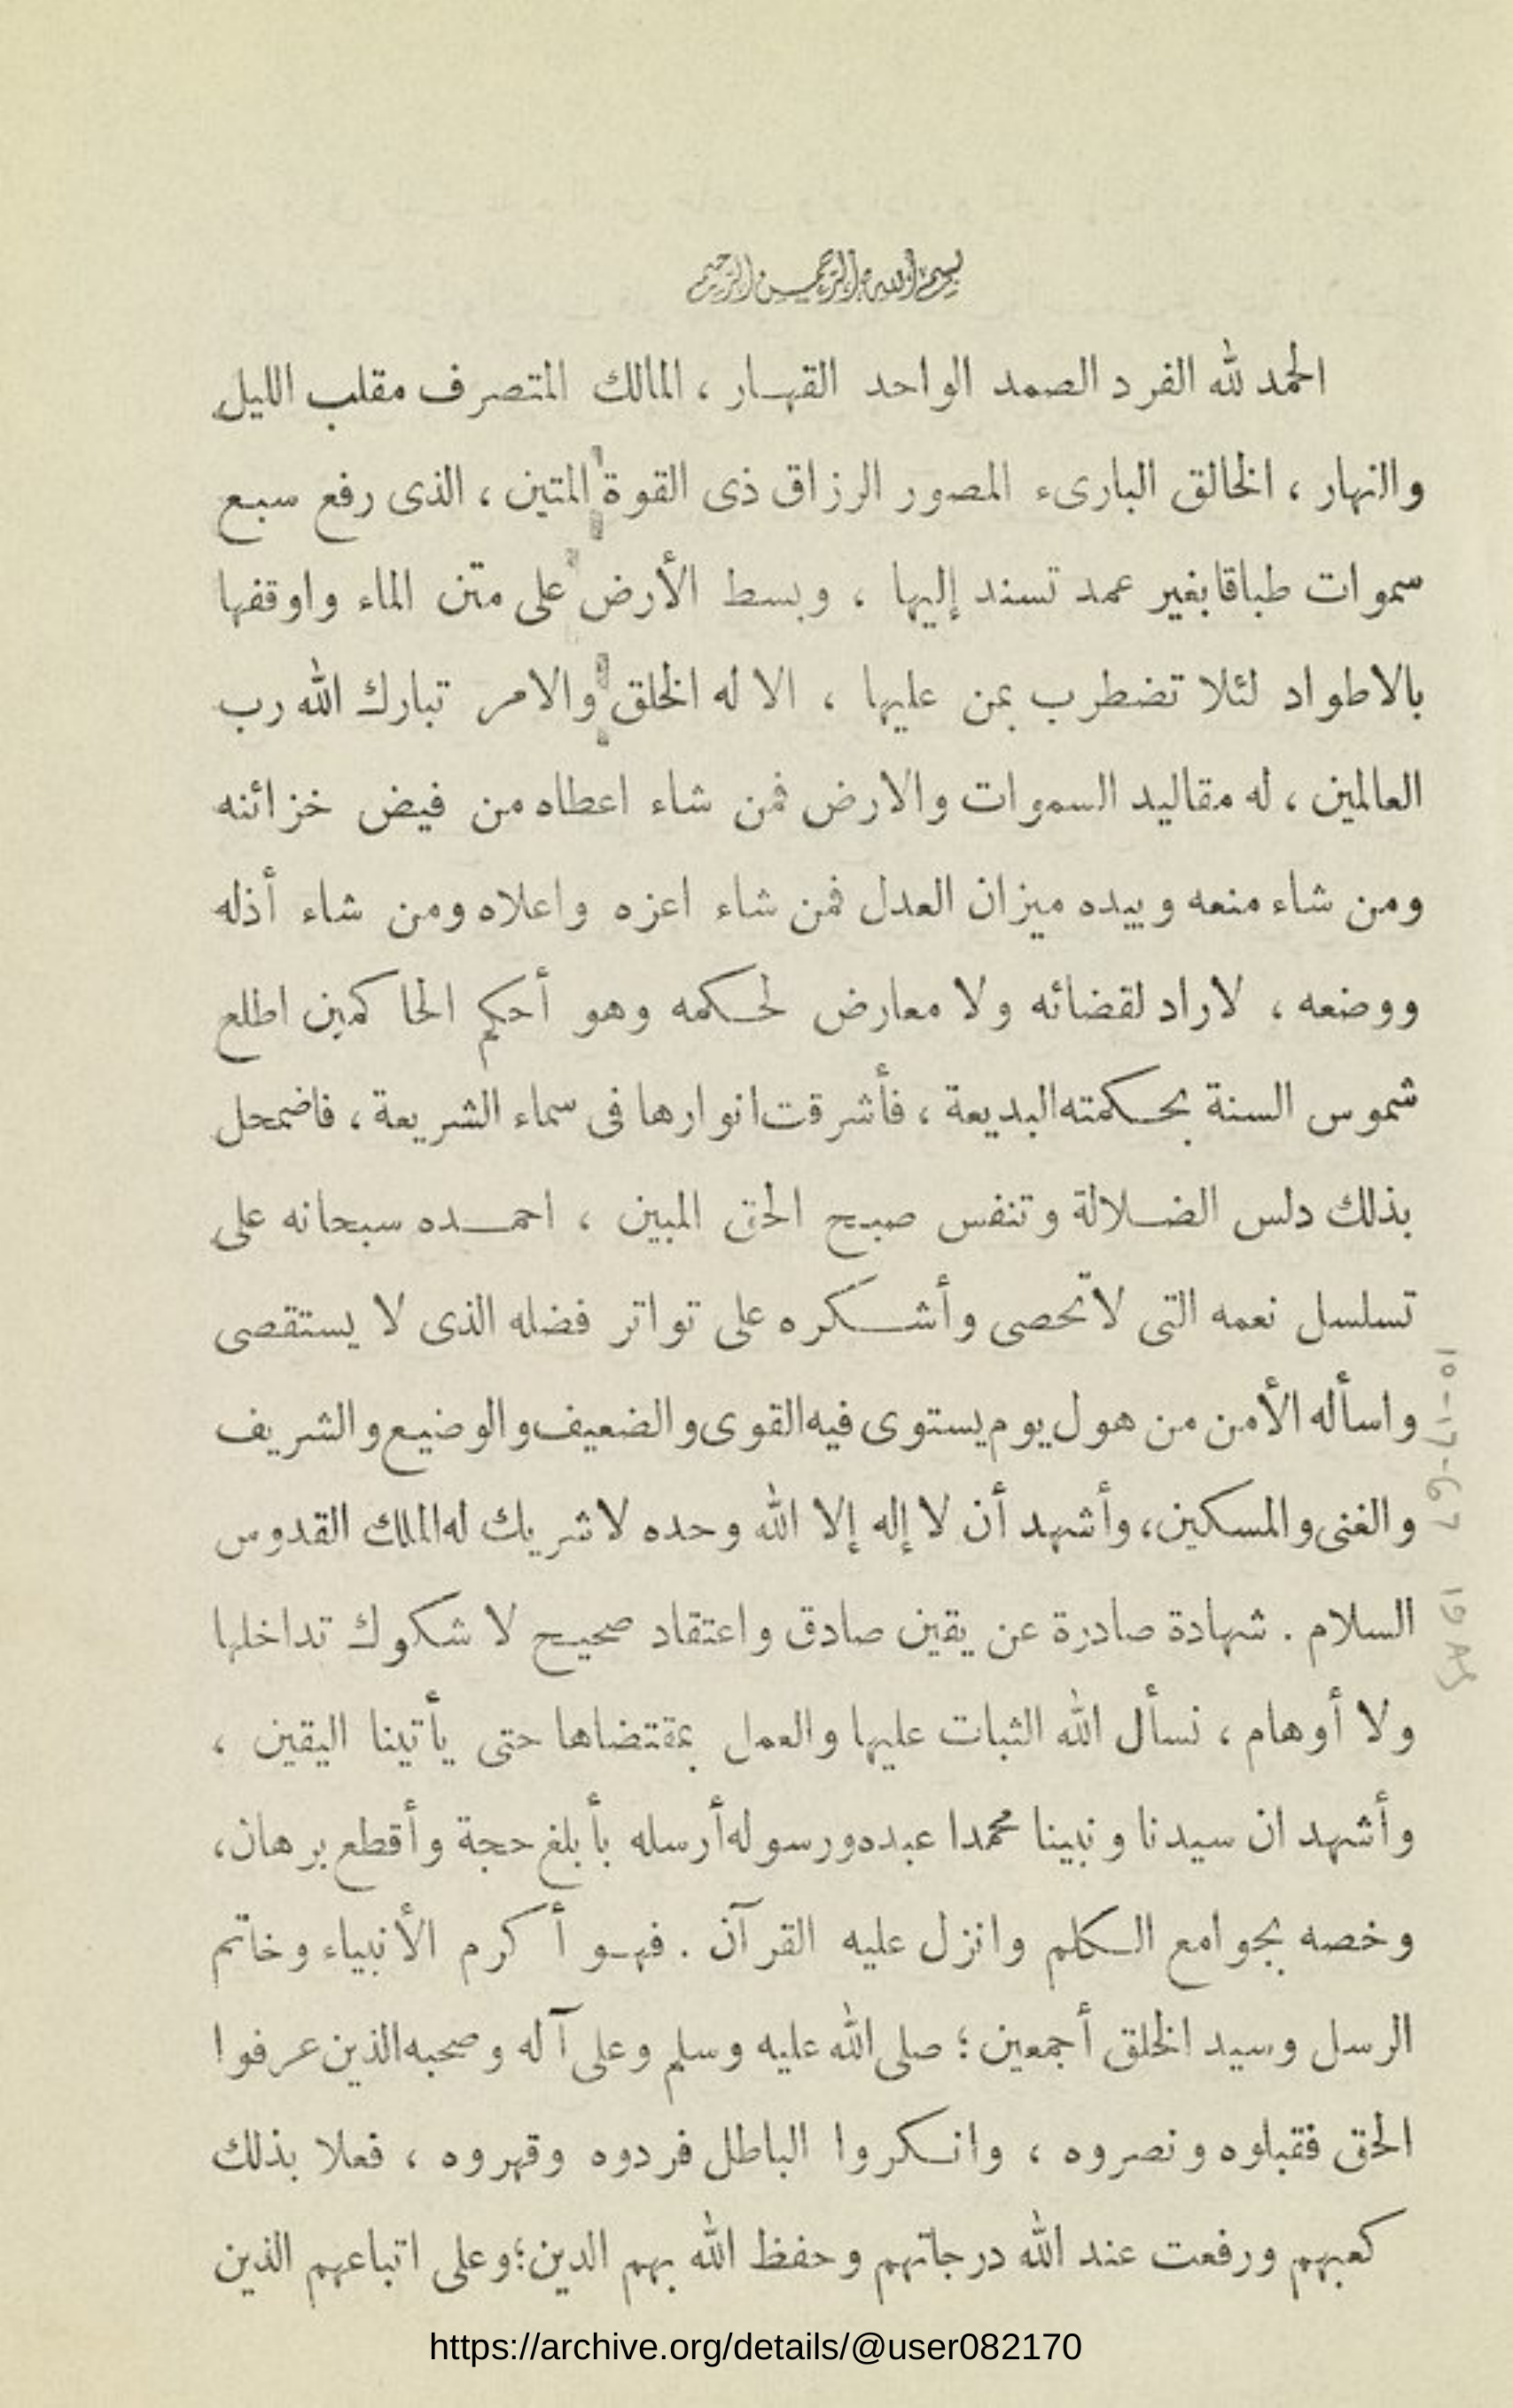 بسم الله الرحمن الرحيم
الحمد لله الفرد الصمد الواحد القهار ، المالك المتصرف مقلب الليل
والنهار ، الخالق البارىء المصور الرزاق ذى القوة المتين ، الذى رفع سبع
سموات طباقا بغير عمد تسند إليها ، وبسط الأرض على متن الماء واوقفها
بالاطواد لئلا تضطرب بمن عليها ، الا له الخلق والامر تبارك الله رب
العالمين ، له مقاليد السموات والارض فمن شاء اعطاه من فيض خزائنه
ومن شاء منعه وبيده ميزان العدل فمن شاء اعزه واعلاه ومن شاء أذله
ووضعه ، لاراد لقضائه ولا معارض لحكمه وهو أحكم الحاكمين اطلع
شموس السنة بحكمته البديعة ، فأشرقت انوارها فى سماء الشريعة ، فاضمحل
بذلك دلس الضلالة وتنفس صبح الحق المبين ، احمده سبحانه على
تسلسل نعمه التى لا تحصى وأشكره على تواتر فضله الذى لا يستقصى
واسأله الأمن من هول يوم يستوى فيه القوى والضعيف والوضيع والشريف
والغنى والمسكين، وأشهد أن لا إله إلا الله وحده لا شريك له الملك القدوس
السلام . شهادة صادرة عن يقين صادق واعتقاد صحيح لا شكوك تداخلها
ولا أوهام ، نسأل الله الثبات عليها والعمل بمقتضاها حتى يأتينا اليقين ،
وأشهد ان سيدنا ونبينا محمدا عبده ورسوله أرسله بأبلغ حجة وأقطع برهان،
وخصه بجوامع الكلم وانزل عليه القرآن . فهو أكرم الأنبياء وخاتم
الرسل وسيد الخلق أجمعين ؛ صلى الله عليه وسلم وعلى آله وصحبه الذين عرفوا
الحق فقبلوه ونصروه ، وانكروا الباطل فردوه وقهروه ، فعلا بذلك
كعبهم ورفعت عند الله درجاتهم وحفظ الله بهم الدين؛ وعلى اتباعهم الذين
https://archive.org/details/@user082170